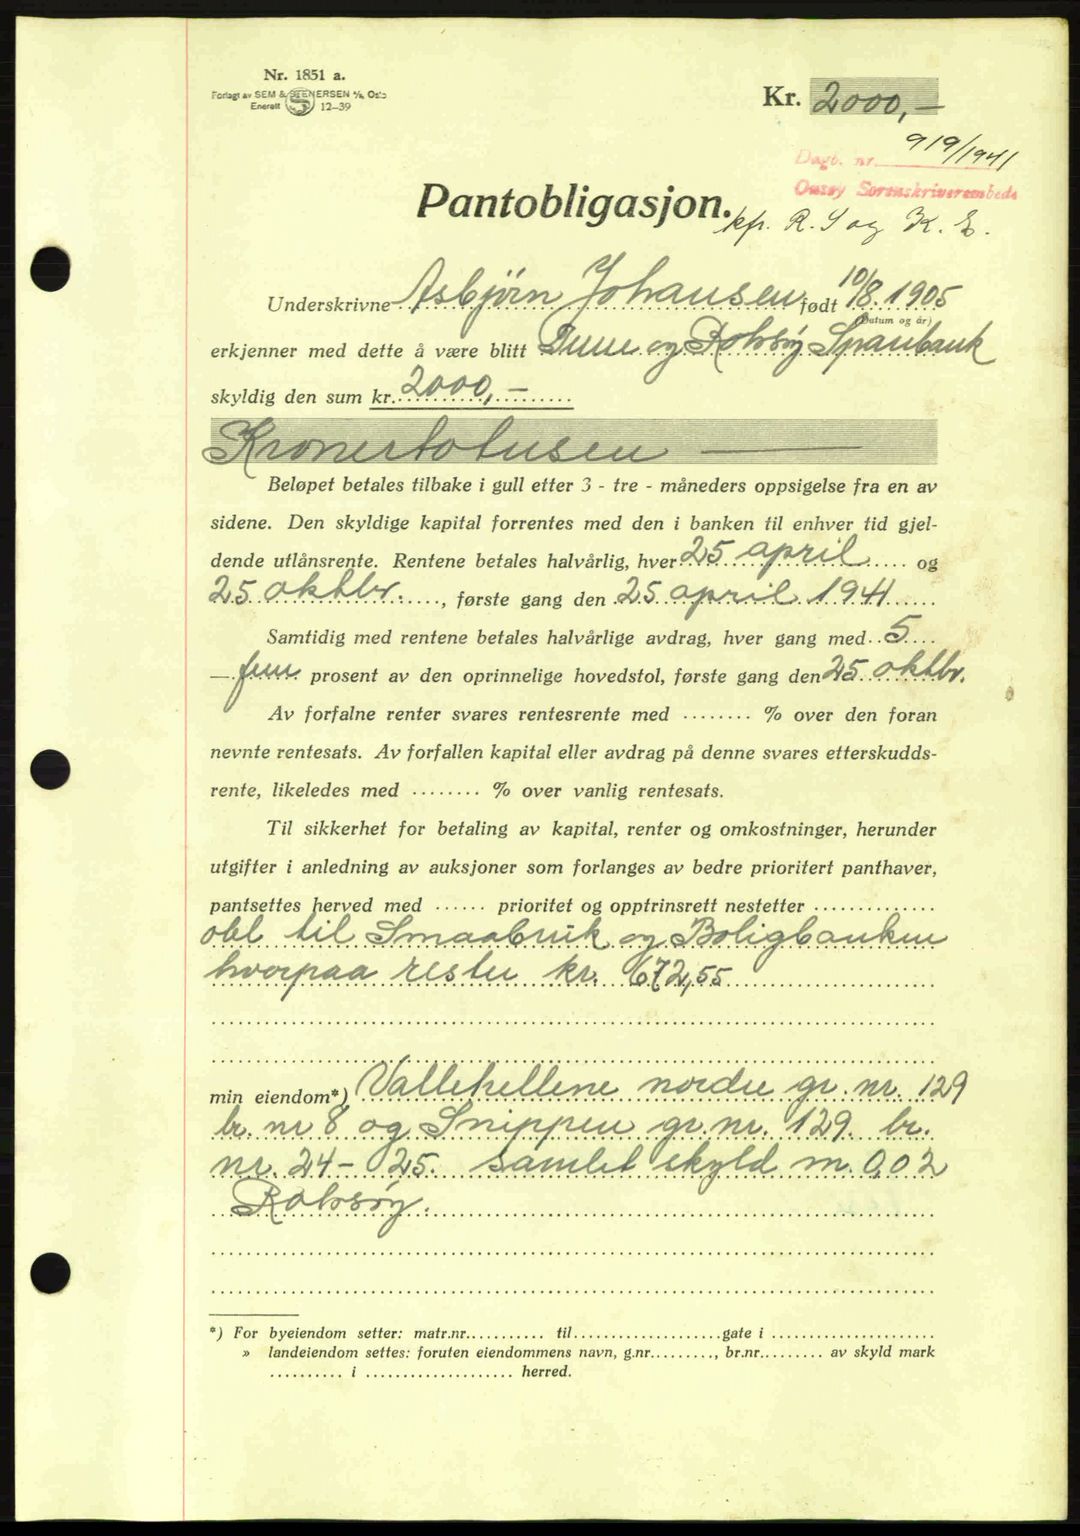 Nr. 1851 a.
Forlagt av SEM & STENERSEN A/S, Oslo
Enerett 12-39
Kr. 2000,-
Dagb. nr. 919/1941
Onsøy Sorenskriverembede
Pantobligasjon.
kfr. R. S og K. E.
Underskrivne Asbjörn Johansen født 10/8. 1905
(Datum og år)
erkjenner med dette å være blitt Tune og Rolvsøy Sparebank
skyldig den sum kr. 2000,-
Kronertotusen
Beløpet betales tilbake i gull etter 3 - tre - måneders oppsigelse fra en av
sidene. Den skyldige kapital forrentes med den i banken til enhver tid gjel-
dende utlånsrente. Rentene betales halvårlig, hver 25 april og
25 oktbr. , første gang den 25 april 1941
Samtidig med rentene betales halvårlige avdrag, hver gang med 5
- fem prosent av den oprinnelige hovedstol, første gang den 25 oktbr.
Av forfalne renter svares rentesrente med ........ % over den foran
nevnte rentesats. Av forfallen kapital eller avdrag på denne svares etterskudds-
rente, likeledes med ........ % over vanlig rentesats.
Til sikkerhet for betaling av kapital, renter og omkostninger, herunder
utgifter i anledning av auksjoner som forlanges av bedre prioritert panthaver,
pantsettes herved med ...... prioritet og opptrinsrett nestetter ..............
obl til Smaabruk og Boligbanken
hvorpaa rester kr. 672,55
min eiendom*) Vallehellene nordre gr. nr. 129
br. nr 8 og Snippen gr. nr. 129. br.
nr. 24 - 25. samlet skyld m. 0,02
Rolvsøy.
*) For byeiendom setter: matr.nr........... til.....................gate i .......................
» landeiendom settes: foruten eiendommens navn, g.nr........., br.nr......... av skyld mark
.......... i .................... herred.